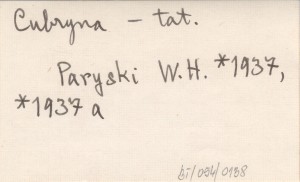 Cubryna – tat.
Paryski W.H. *1937,
*1937 a
bi/094/0188